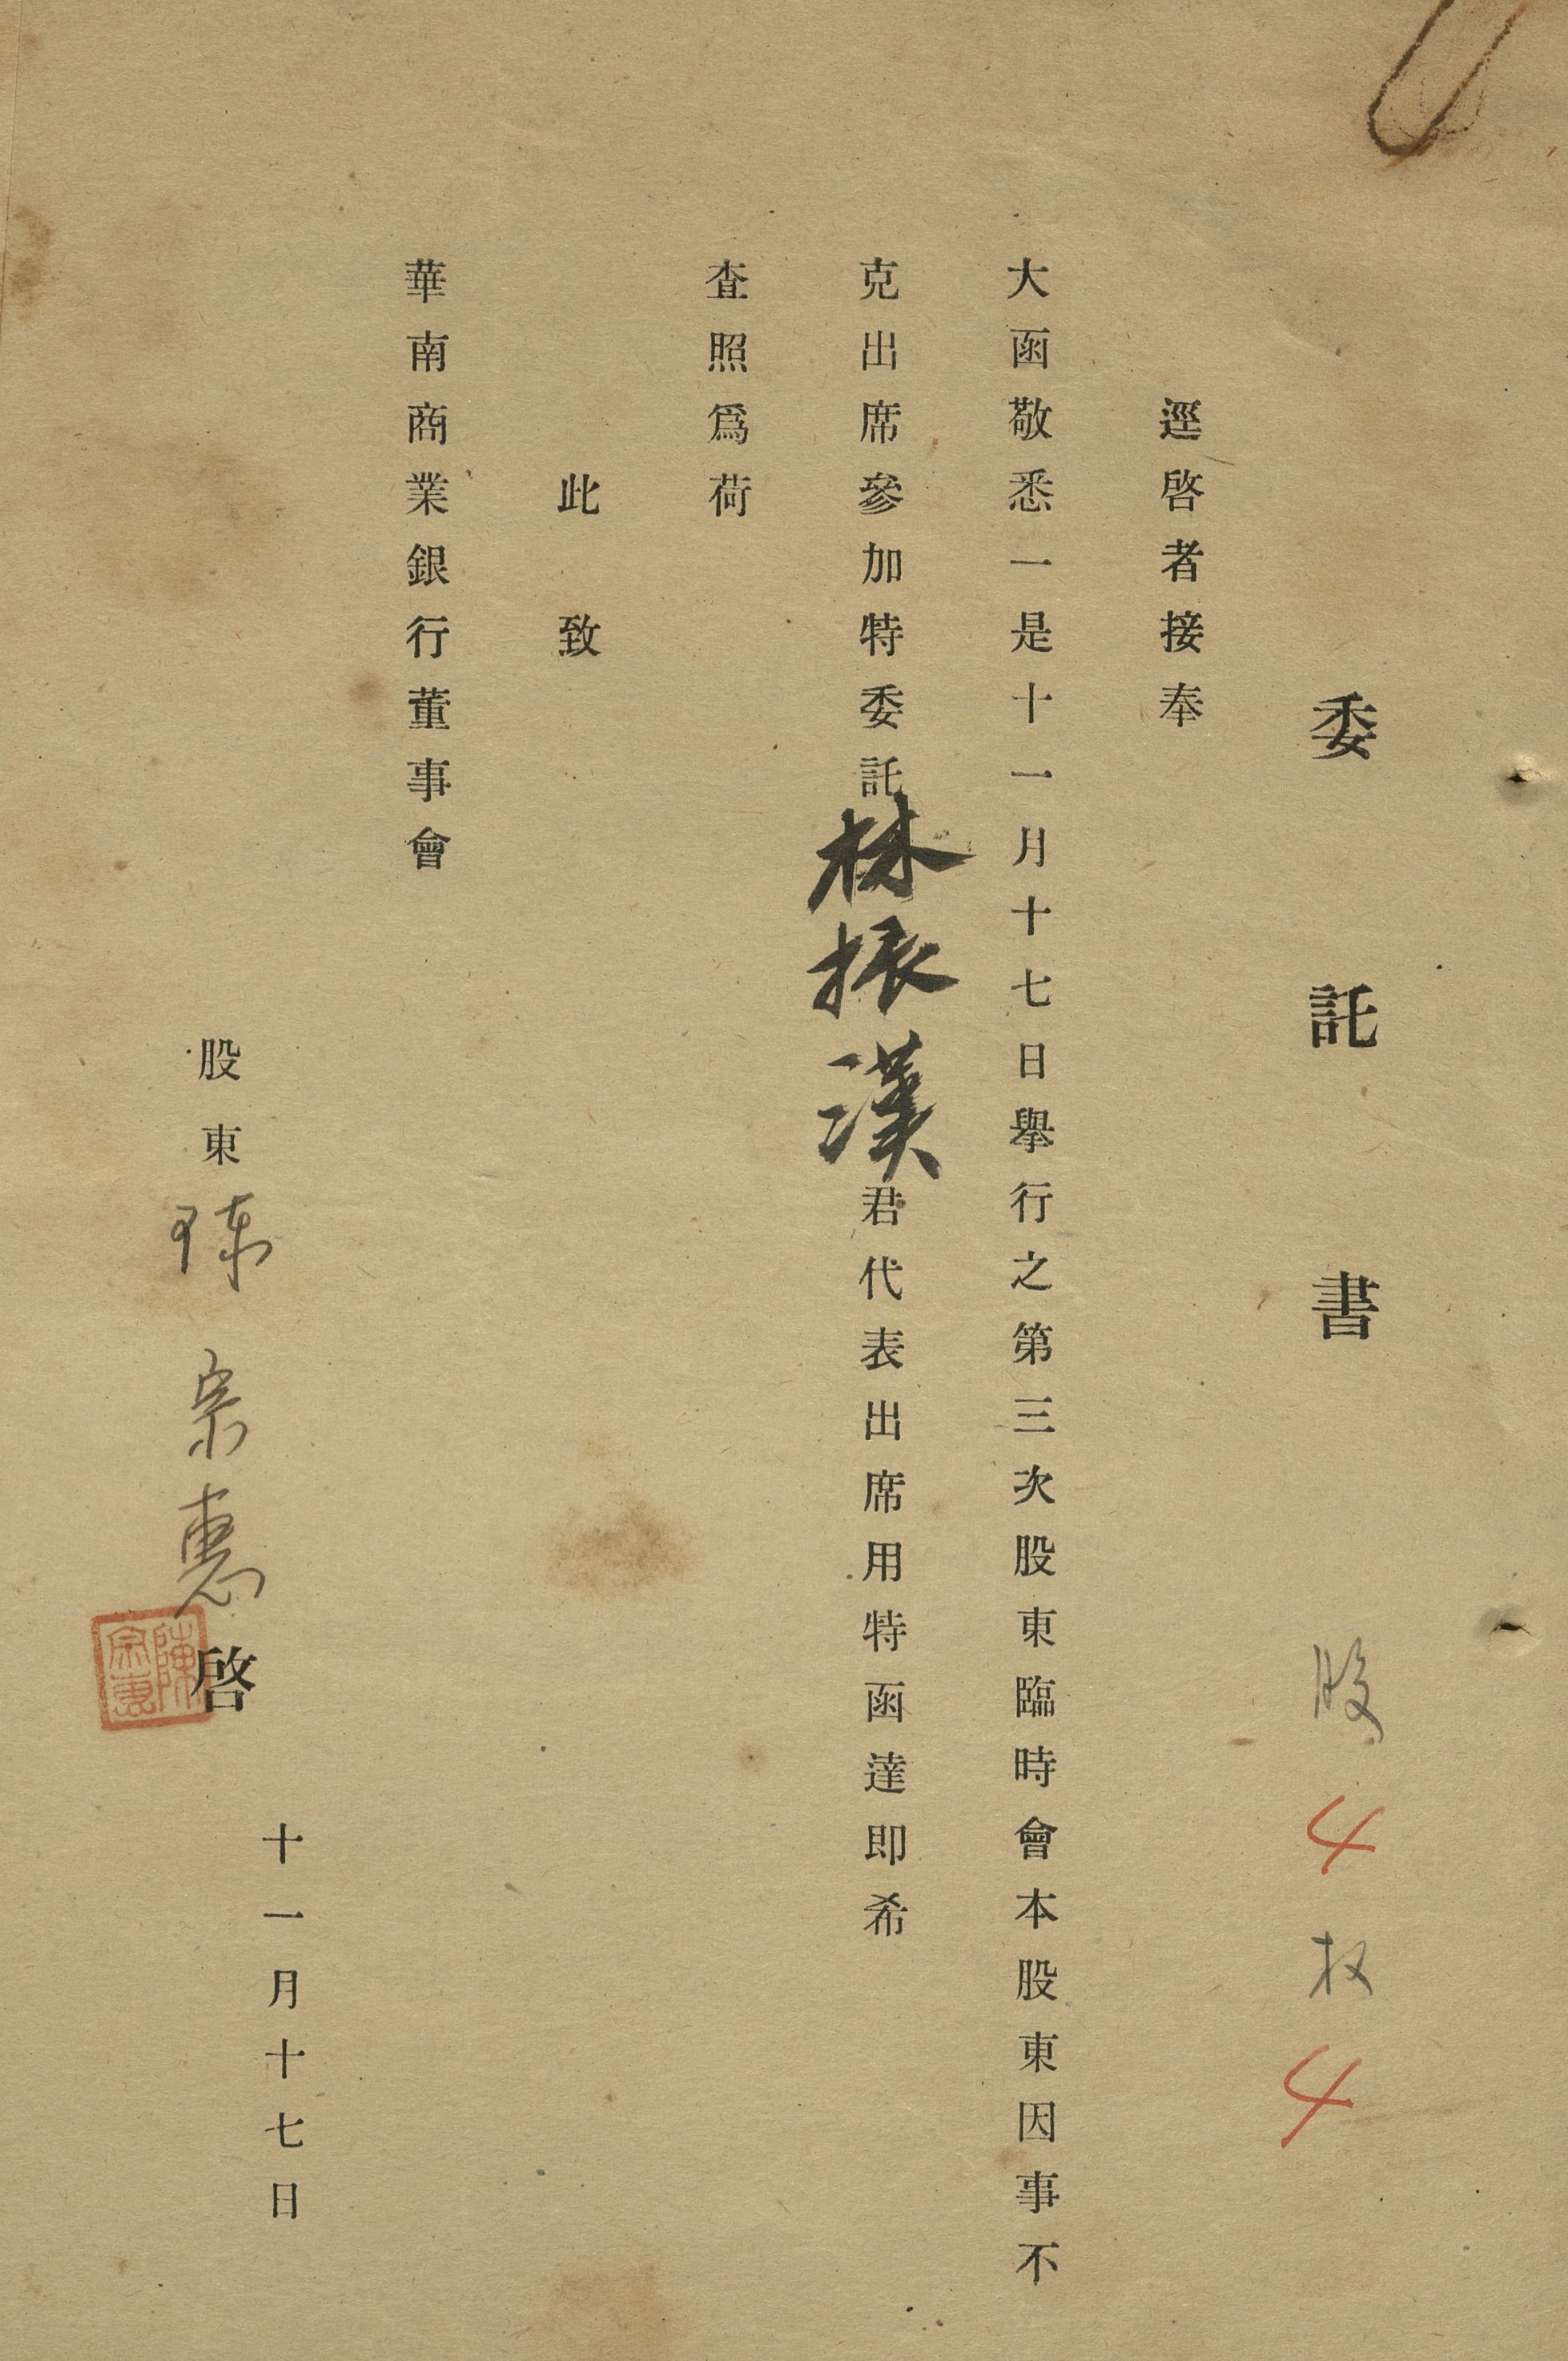 委託書 股4权4
逕啓者接奉
大函敬悉一是十一月十七日舉行之第三次股東臨時會本股東因事不
克出席參加特委託林振漢君代表出席用特函達即希
查照爲荷
此致
華南商業銀行董事會
十一月十七日
股東陳宗惠啓
陳宗惠